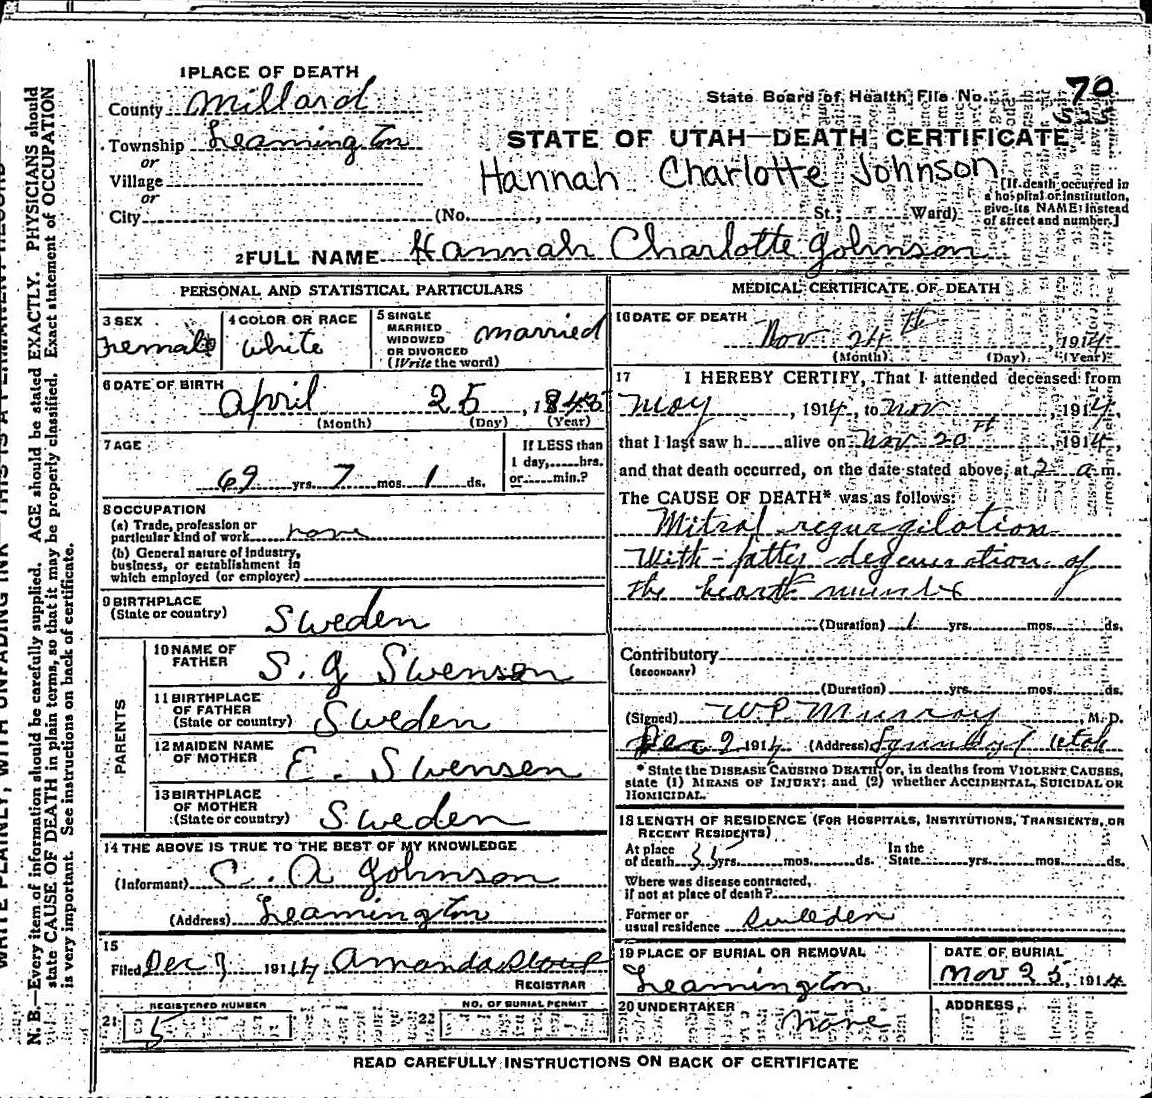 1 PLACE OF DEATH
County Millard
Township Leamington
or
Village
or
City (No. , St.; Ward)
State Board of Health File No. 70
525
STATE OF UTAH—DEATH CERTIFICATE
Hannah Charlotte Johnson
[If death occurred in
a hospital or institution,
give its NAME instead
of street and number.]
2 FULL NAME Hannah Charlotte Johnson
PERSONAL AND STATISTICAL PARTICULARS
3 SEX
Female
4 COLOR OR RACE
White
5 SINGLE
MARRIED
WIDOWED
OR DIVORCED
(Write the word)
married
6 DATE OF BIRTH
April 25, 1845
(Month) (Day) (Year)
7 AGE
69 yrs. 7 mos. 1 ds.
If LESS than
1 day, hrs.
or min.?
8 OCCUPATION
(a) Trade, profession or
particular kind of work none
(b) General nature of industry,
business, or establishment in
which employed (or employer)
9 BIRTHPLACE
(State or country)
Sweden
PARENTS
10 NAME OF
FATHER
S. G Swenson
11 BIRTHPLACE
OF FATHER
(State or country)
Sweden
12 MAIDEN NAME
OF MOTHER
E. Swensen
13 BIRTHPLACE
OF MOTHER
(State or country)
Sweden
14 THE ABOVE IS TRUE TO THE BEST OF MY KNOWLEDGE
(Informant) C. A Johnson
(Address) Leamington
15
Filed Dec 7 1914 Amanda
REGISTRAR
REGISTERED NUMBER
21 5
NO. OF BURIAL PERMIT
22
MEDICAL CERTIFICATE OF DEATH
16 DATE OF DEATH
Nov 24th, 1914
(Month) (Day) (Year)
17 I HEREBY CERTIFY, That I attended deceased from
May, 1914, to Nov, 1914,
that I last saw h alive on Nov 20th, 1914,
and that death occurred, on the date stated above, at 2 a m.
The CAUSE OF DEATH* was as follows:
Mitral regurgilation
With fatty degeneration of
the heart muscle
(Duration) 1 yrs. mos. ds.
Contributory
(SECONDARY)
(Duration) yrs. mos. ds.
(Signed) W. P. Murray, M. D.
Dec 2 1914 (Address) Lynndyl Utah
*State the DISEASE CAUSING DEATH; or, in deaths from VIOLENT CAUSES,
state (1) MEANS OF INJURY; and (2) whether ACCIDENTAL, SUICIDAL OR
HOMICIDAL.
18 LENGTH OF RESIDENCE (FOR HOSPITALS, INSTITUTIONS, TRANSIENTS, OR
RECENT RESIDENTS)
At place
of death 35 yrs. mos. ds.
In the
State yrs. mos. ds.
Where was disease contracted,
if not at place of death?
Former or
usual residence Sweden
19 PLACE OF BURIAL OR REMOVAL
Leamington
DATE OF BURIAL
Nov 25, 1914
20 UNDERTAKER
None
ADDRESS
READ CAREFULLY INSTRUCTIONS ON BACK OF CERTIFICATE
WRITE PLAINLY, WITH UNFADING INK—THIS IS A PERMANENT RECORD
N. B.—Every item of information should be carefully supplied. AGE should be stated EXACTLY. PHYSICIANS should
state CAUSE OF DEATH in plain terms, so that it may be properly classified. Exact statement of OCCUPATION
is very important. See instructions on back of certificate.